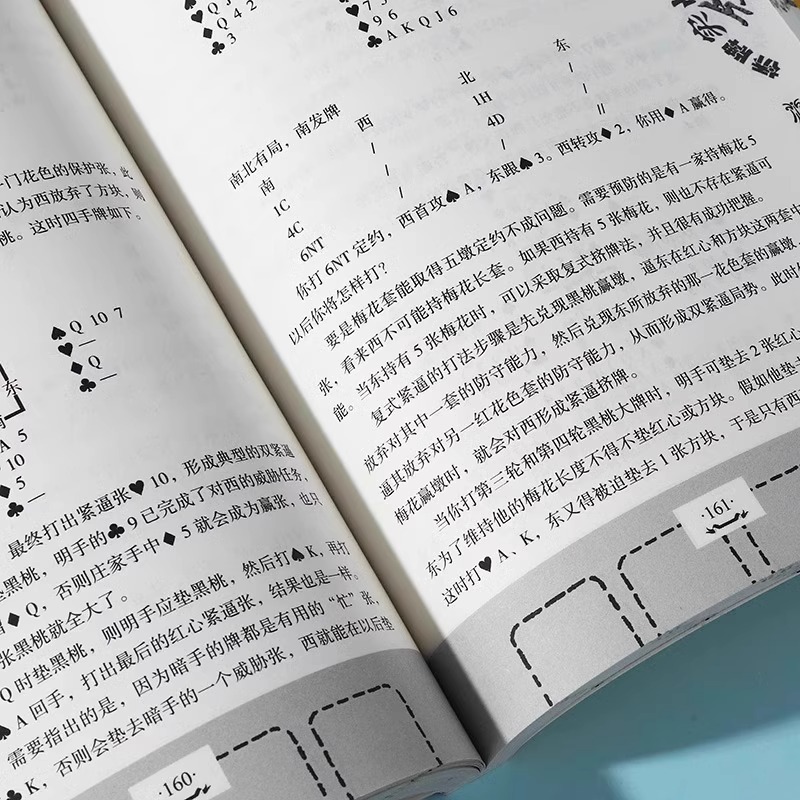 一门花色的保护张，此
认为西放弃了方块，则
桃。这时四手牌如下。
♠Q 10 7
♥—
♦Q
♣—
东
A 5
10
♦5
♣—
最终打出紧逼张♥10，形成典型的双紧逼
垫黑桃，明手的♣9已完成了对西的威胁任务，
♦Q，否则庄家手中♦5就会成为赢张，也只
张黑桃就全大了。
Q时垫黑桃，则明手应垫黑桃，然后打♠K，再打
♠A回手，打出最后的红心紧逼张，结果也是一样。
需要指出的是，因为暗手的牌都是有用的“忙”张，
♠K，否则会垫去暗手的一个威胁张，西就能在以后垫
·160·
♥QJ
♦Q42
♣3
♥73
♦96
♣AKQJ6
南北有局，南发牌
南 西 北 东
1C / 1H /
4C / 4D /
6NT / //
你打6NT定约，西首攻♠A，东跟♠3。西转攻♦2，你用♦A赢得。
以后你将怎样打？
要是梅花套能取得五墩定约不成问题。需要预防的是有一家持梅花5
张，看来西不可能持梅花长套。如果西持有5张梅花，则也不存在紧逼可
能。当东持有5张梅花时，可以采取复式挤牌法，并且很有成功把握。
复式紧逼的打法步骤是先兑现黑桃赢墩，逼东在红心和方块这两套中
放弃对其中一套的防守能力，然后兑现东所放弃的那一花色套的赢墩，
逼其放弃对另一红花色套的防守能力，从而形成双紧逼局势。此时
梅花赢墩时，就会对西形成紧逼挤牌。
当你打第三轮和第四轮黑桃大牌时，明手可垫去2张红心
东为了维持他的梅花长度不得不垫红心或方块。假如他垫
这时打♥A、K，东又得被迫垫去1张方块，于是只有西
·161·